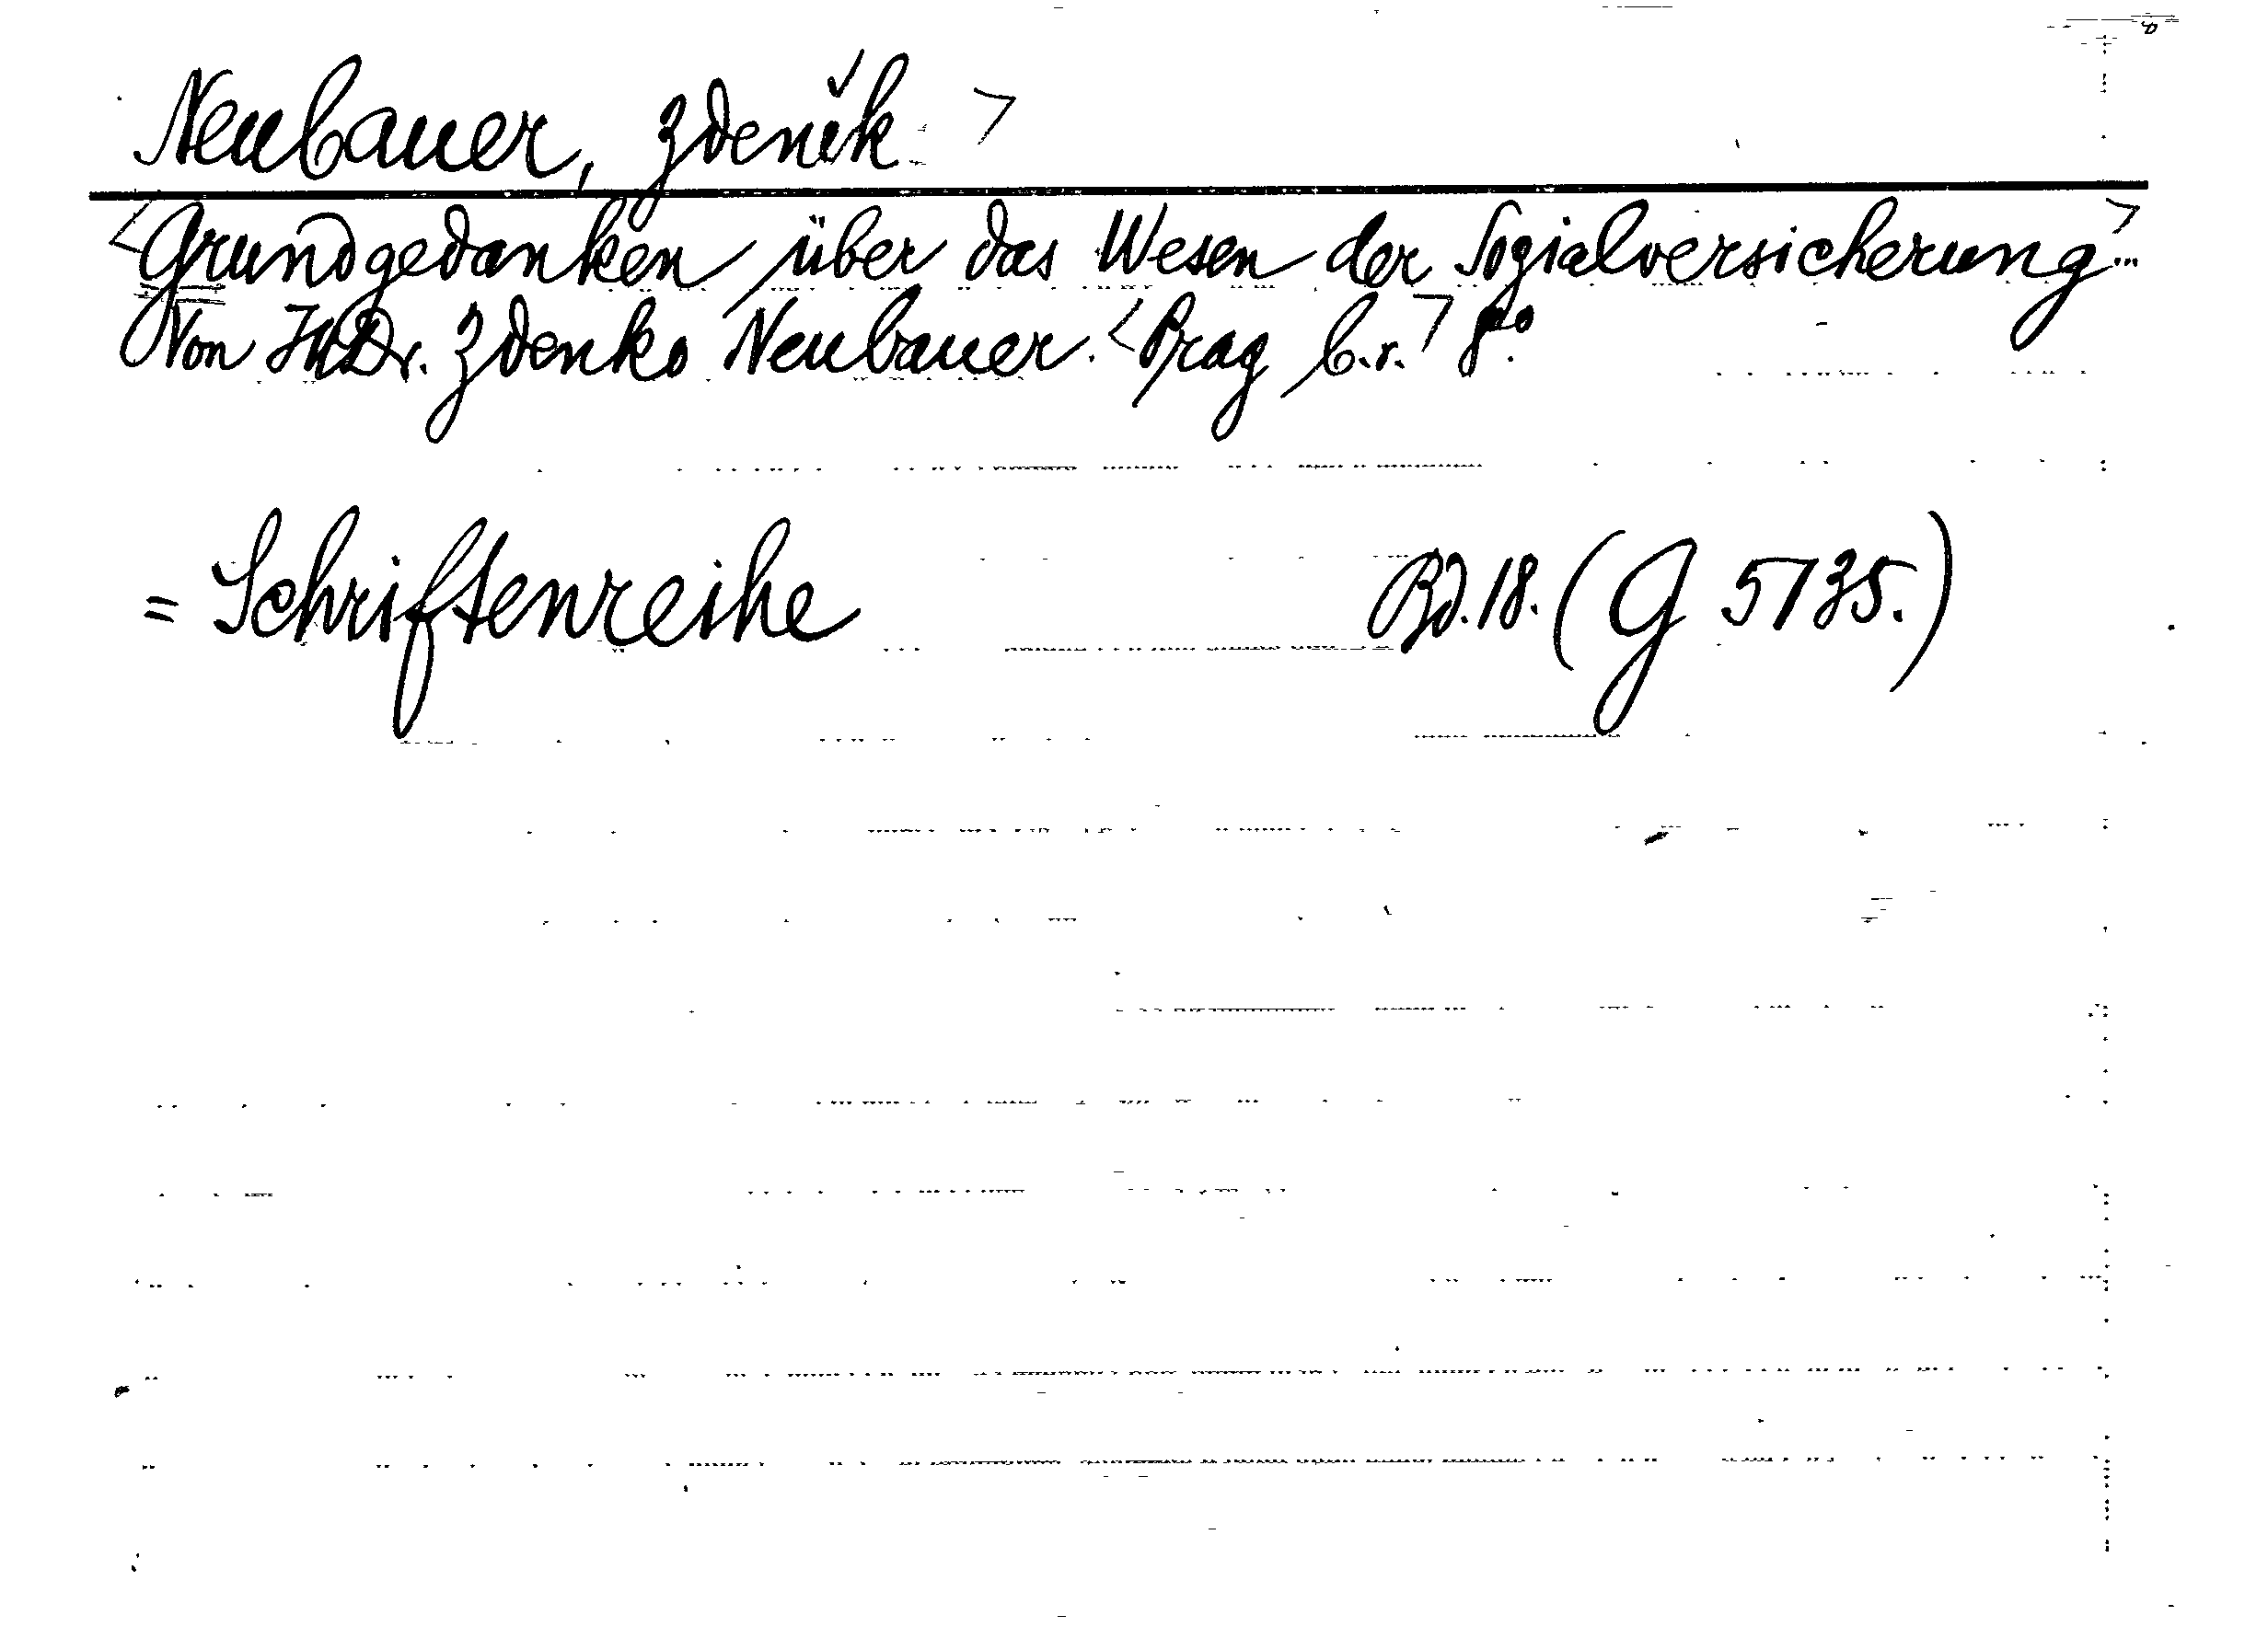 Neubauer, Zdeněk >
<Grundgedanken über das Wesen der Sozialversicherung>...
Von JUDr. Zdenko Neubauer. <Prag b.r.> 8°.
= Schriftenreihe Bd. 18. (G 5135.)